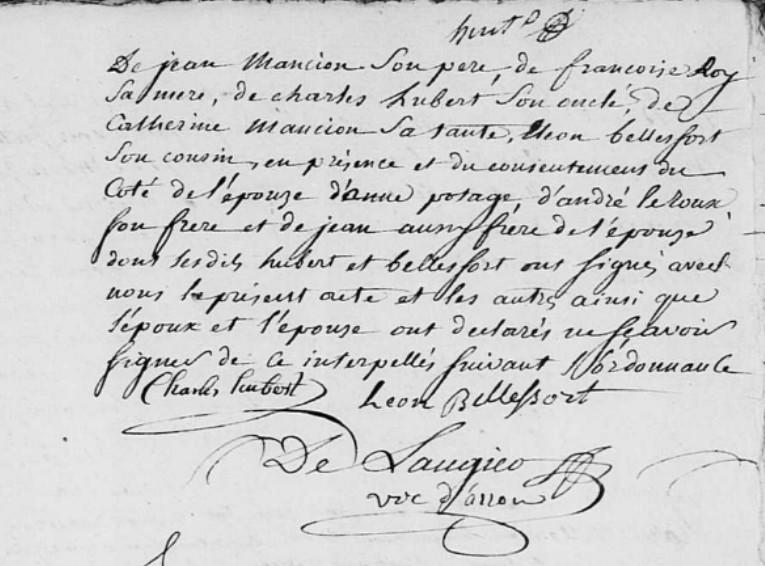 huit
De jean Mancion Son pere, de francoise Roy
Sa mere, de charles hubert Son oncle, de
Catherine Mancion Sa tante, Leon bellessort
Son cousin, en présence et du consentement du
Coté de l'épouze d'anne potage, d'andré le roux
son frere et de jean aussy frére de l'épouze
dont lesdits hubert et bellessort ont signés avec
nous le présent acte et les autres ainsi que
l'époux et l'épouse ont declarés ne sçavoir
signer de ce interpellés suivant l'ordonnance
Charles hubert Leon Bellessort
De
vic d'arrou